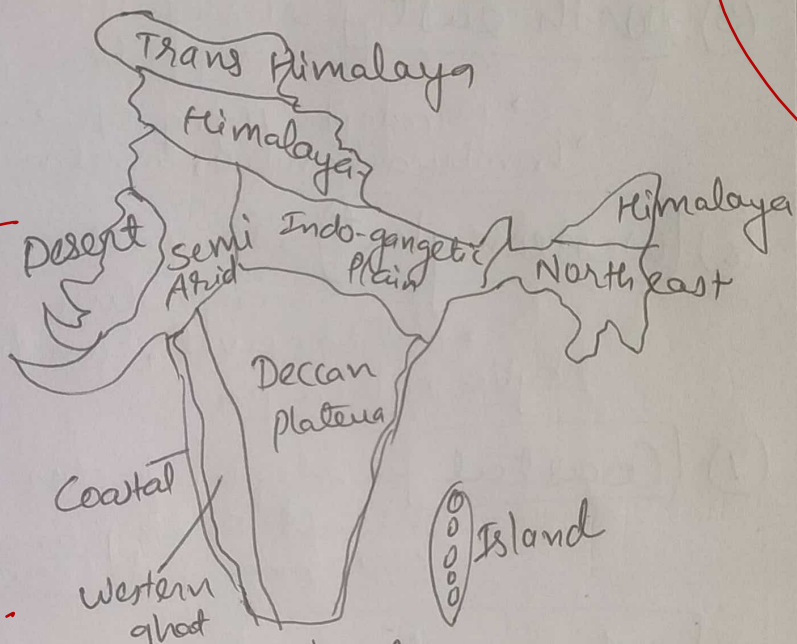 Trans Himalaya
Himalaya
Himalaya
Desert
Semi
Arid
Indo-gangetic
Plain
North east
Deccan
plateua
Coastal
Island
Western
ghat